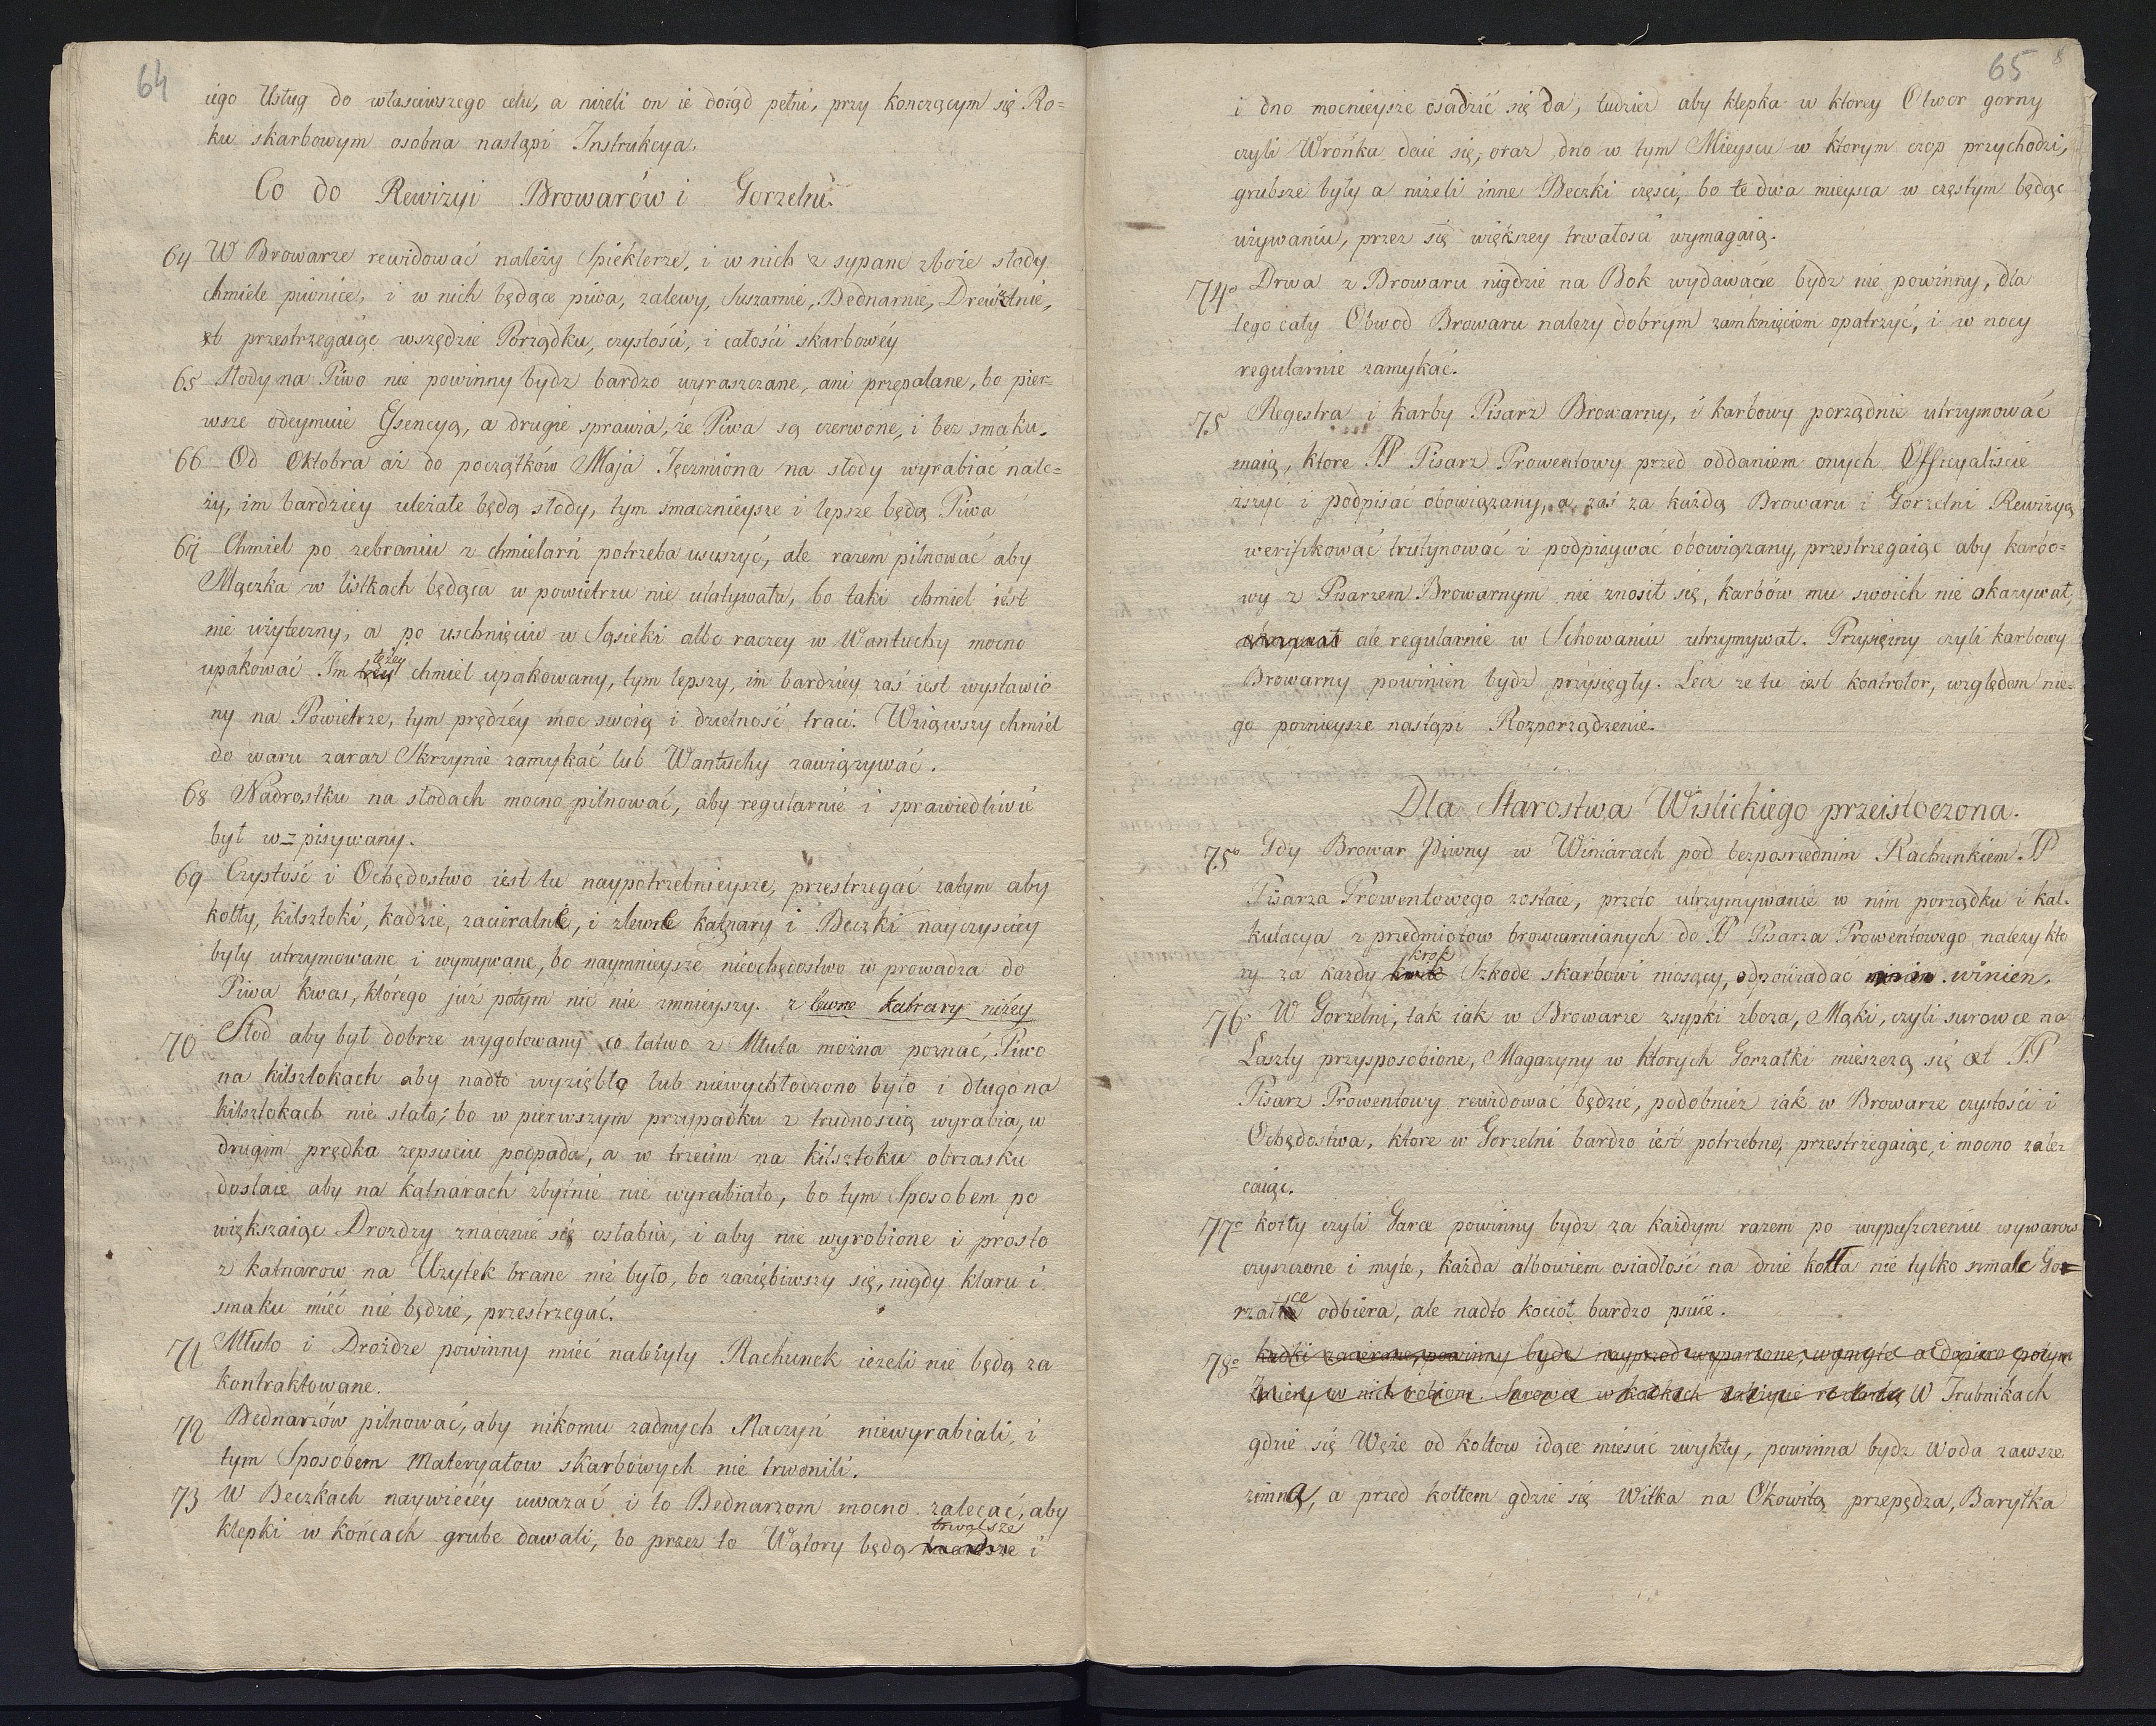 64
iego Usług do własciwszego celu, a niżeli on ie dotąd pełni, przy konczącym się Ro=
ku skarbowym osobna nastąpi Instrukcya.
Co do Rewizyi Browarów i Gorzelni.
64 W Browarze rewidować należy Spieklerze, i w nich z sypane zboże słody
chmiele piwnice, i w nich będące piwa, zalewy, Suszarnie, Bednarnie, Drewutnie,
et przestrzegaiąc wszędzie Porządku, czystości, i całości skarbowéy
65 Słody na Piwo nie powinny bydz bardzo wyraszczane, ani przepalane, bo pier=
wsze odeymuie Essencyą, a drugie sprawia, że Piwa są czerwone, i bez smaku.
66 Od Oktobra aż do początków Maja Jęczmiona na słody wyrabiać nale=
ży, im bardziey uleżałe będą słody, tym smacznieysze i lepsze będą Piwa
67 Chmiel po zebraniu z chmielarń potrzeba ususzyć, ale razem pilnować aby
Mączka w listkach będąca w powietrzu nie ulatywała, bo taki chmiel iest
nie użyteczny, a po uschnięciu w Sąsieki albo raczey w Wantuchy mocno
upakować Im tężey chmiel upakowany, tym lepszy, im bardziéy zaś iest wystawio
ny na Powietrze, tym prędzéy moc swoią i dzielność traci. Wziąwszy chmiel
do waru zaraz Skrzynie zamykać lub Wantuchy zawiązywać.
68 Nadrostku na słodach mocno pilnować, aby regularnie i sprawiedliwie
był w=pisywany.
69 Czystość i Ochędostwo iest tu naypotrzebnieysze, przestrzegać zatym aby
kotły, kilsztoki, kadzie, zacieralne, i zlewne katnary i Beczki nayczyściey
były utrzymowane i wymywane, bo naymnieysze nieochędostwo w prowadza do
Piwa kwas, którego już potym nic nie zmnieyszy. zlewne katnary niżey
70 Słod aby był dobrze wygotowany co łatwo z Młuta można poznać, Piwo
na kilsztokach aby nadto wyziębłe lub niewychłodzone było i długo na
kilsztokach nie stało; bo w pierwszym przypadku z trudnością wyrabia, w
drugim prędka zepsuciu podpada, a w trzecim na kilsztoku obrzasku
dostaie, aby na kątnarach zbytnie nie wyrabiało, bo tym Sposobem po
większaiąc Drożdży znacznie się osłabia, i aby nie wyrobione i prosto
z katnarow na Użytek brane nie było, bo zaziębiwszy się, nigdy klaru i
smaku mieć nie będzie, przestrzegać.
71 Młuto i Drożdże powinny mieć należyty Rachunek ieżeli nie będą za
kontraktowane.
72 Bednarzów pilnować, aby nikomu żadnych Naczyń niewyrabiali, i
tym Sposobem Materyałow skarbowych nie trwonili.
73 W Beczkach naywięcéy uważać i to Bednarzom mocno zalecać, aby
klepki w końcach grube dawali, bo przez to Wątory będą trwalsze i
65 8
i dno mocnieysze osadzić się da, tudzież aby klepka w ktorey Otwor gorny
czyli Wrońka daie się, oraz dno w tym Mieyscu w ktorym czop przychodzi,
grubsze były a niżeli inne Beczki części, bo te dwa mieysca w częstym będąc
używaniu, przez się większey trwałości wymagaią.
74o Drwa z Browaru nigdzie na Bok wydawane bydz nie powinny, dla
tego cały Obwod Browaru należy dobrym zamknięciem opatrzyć, i w nocy
regularnie zamykać.
75 Regestra i karby Pisarz Browarny, i karbowy porządnie utrzymować
maią, ktore JP Pisarz Prowentowy przed oddaniem onych Officyaliście
zszyć i podpisać obowiązany, a zaś za każdą Browaru i Gorzelni Rewizyą
weryfikować trutynować i podpisywać obowiązany, przestrzegaiąc aby karbo=
wy z Pisarzem Browarnym nie znosił się, karbów mu swoich nie okazywał,
ale regularnie w Schowaniu utrzymywał. Przysiężny czyli karbowy
Browarny powinien bydz przysięgły. Lecz że tu iest kontrolor, względem nie=
go poznieysze nastąpi Rozporządzenie.
Dla Starostwa Wislickiego przeistoczona.
75o Gdy Browar Piwny w Winiarach pod bezposrzednim Rachunkiem JP
Pisarza Prowentowego zostaie, przeto utrzymywanie w nim porządku i kal=
kulacya z przedmiotow browarnianych do JP Pisarza Prowentowego należy kto
ry za każdy krok Szkode skarbowi niosący, odpowiadac winien.
76o W Gorzelni, tak iak w Browarze zsypki zboża, Mąki, czyli surowce na
Laszty przysposobione, Magazyny w ktorych Gorzałki mieszczą się et JP
Pisarz Prowentowy rewidować będzie, podobnież iak w Browarze czystości i
Ochędostwa, ktore w Gorzelni bardzo iest potrzebne, przestrzegaiąc, i mocno zale=
caiąc.
77o kotły czyli Garce powinny bydz za każdym razem po wypuszczeniu wywarow
czyszczone i myte, każda albowiem osiadłość na dnie kotła nie tylko szmak Go=
rzałce odbiera, ale nadto kocioł bardzo psuie.
78o kadki zacierne, powinny bydz nayprzod wyparzone, wymyte a dopiero potym
Zaciery w nich robione. Surowce w kadkach W Trubnikach
gdzie się Węże od kotłow idące mieścić zwykły, powinna bydz woda zawsze
zimna, a przed kotłem gdzie się Witka na Okowitą przepędza, Baryłka